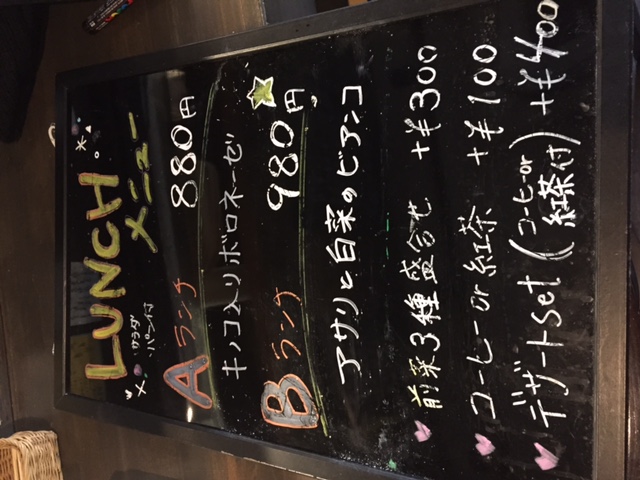 LUNCH
メニュー
サラダ
パン付
Aランチ 880円
キノコ入りボロネーゼ
Bランチ 980円
アサリと白菜のビアンコ
前菜3種盛合せ +¥300
コーヒーor紅茶 +¥100
デザートset(コーヒーor紅茶付) +¥400